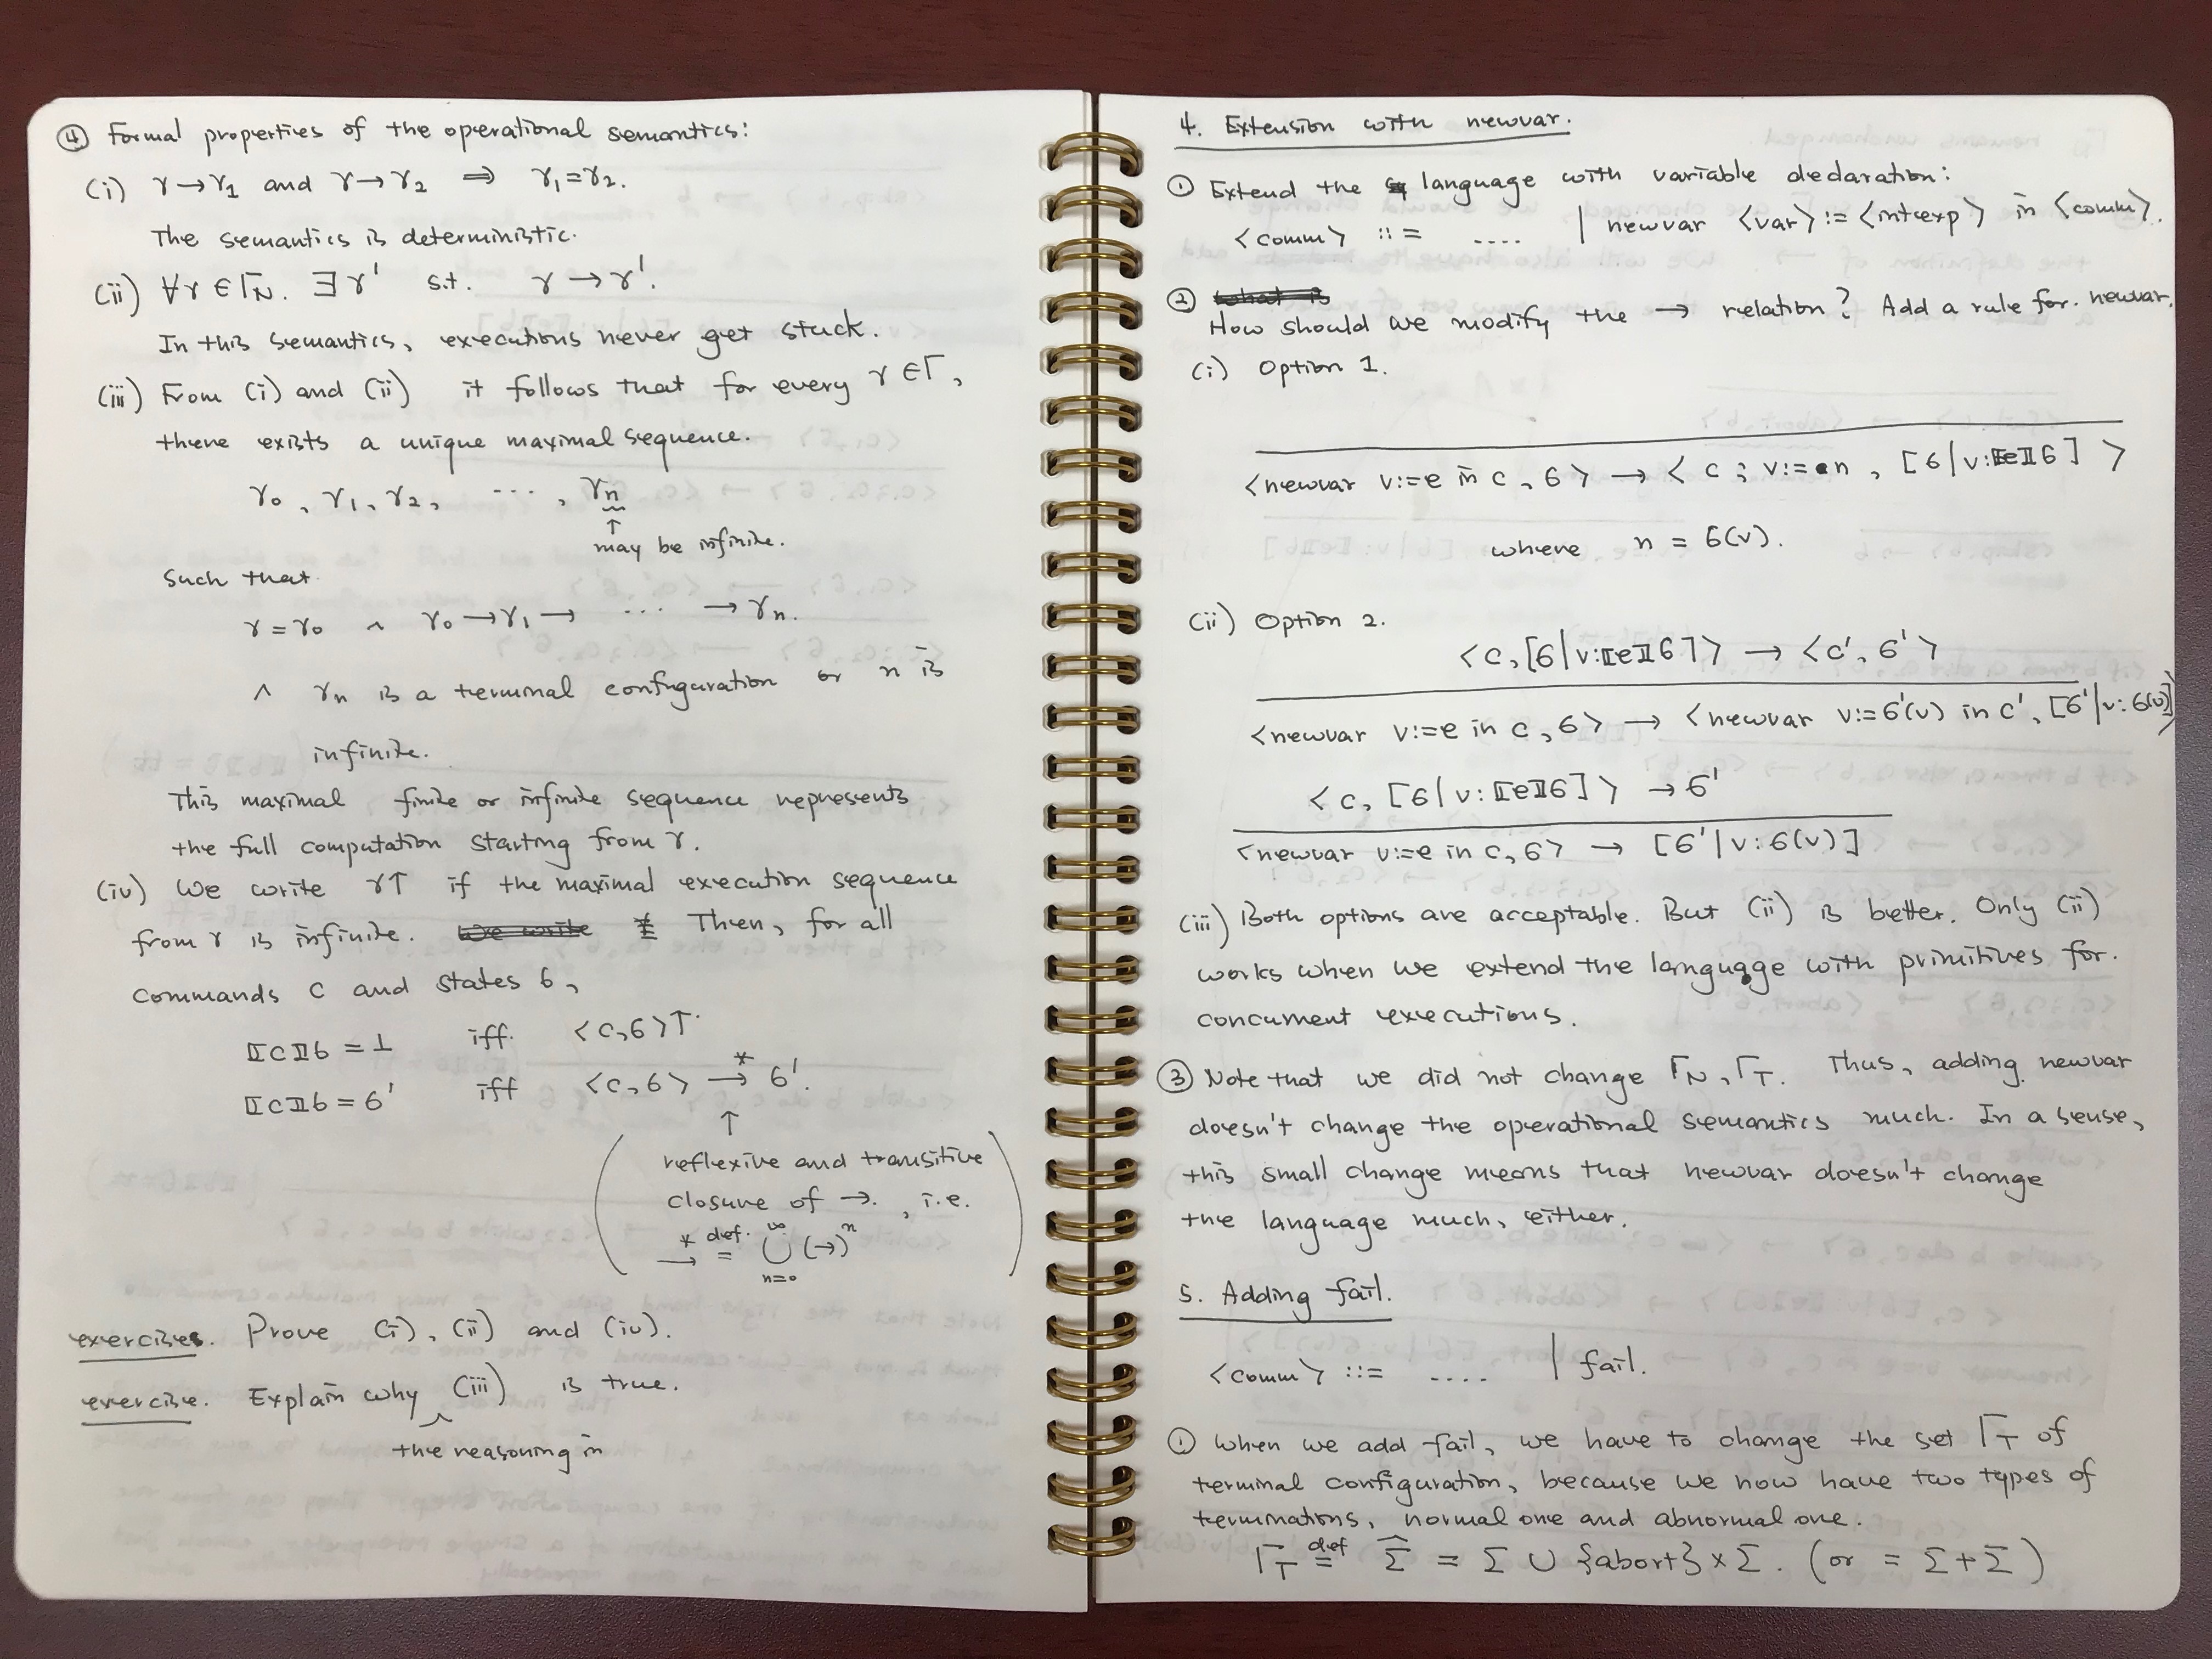 ④ Formal properties of the operational semantics:
(i) γ→γ1 and γ→γ2 ⟹ γ1=γ2.
The semantics is deterministic.
(ii) ∀γ∈ΓN. ∃γ' s.t. γ→γ'.
In this semantics, executions never get stuck.
(iii) From (i) and (ii) it follows that for every γ∈Γ,
there exists a unique maximal sequence.
γ0, γ1, γ2, ..., γn
↑
may be infinite.
Such that
γ=γ0 ∧ γ0→γ1→ ... →γn.
∧ γn is a terminal configuration or n is
infinite.
This maximal finite or infinite sequence represents
the full computation starting from γ.
(iv) We write γ↑ if the maximal execution sequence
from γ is infinite. Then, for all
commands c and states σ,
⟦c⟧σ = ⊥ iff. <c,σ>↑.
⟦c⟧σ = σ' iff <c,σ> →* σ'.
↑
( reflexive and transitive
closure of →. , i.e.
→* def.= ∪n=0∞ (→)n )
exercises. Prove (i), (ii) and (iv).
exercise. Explain why (iii) is true.
the reasoning in
4. Extension with newvar.
① Extend the language with variable declaration:
<comm> ::= .... | newvar <var>:=<intexp> in <comm>.
② What is
How should we modify the → relation? Add a rule for. newvar.
(i) Option 1.
<newvar v:=e in c, σ> → < c ; v:=n , [σ|v:⟦e⟧σ] >
where n = σ(v).
(ii) Option 2.
<c,[σ|v:⟦e⟧σ]> → <c', σ'>
<newvar v:=e in c, σ> → <newvar v:=σ'(v) in c', [σ'|v:σ(v)]>
<c, [σ|v:⟦e⟧σ]> → σ'
<newvar v:=e in c,σ> → [σ'|v:σ(v)]
(iii) Both options are acceptable. But (ii) is better. Only (ii)
works when we extend the language with primitives for.
concurrent executions.
③ Note that we did not change ΓN, ΓT. Thus, adding newvar
doesn't change the operational semantics much. In a sense,
this small change means that newvar doesn't change
the language much, either.
5. Adding fail.
<comm> ::= .... | fail.
① When we add fail, we have to change the set ΓT of
terminal configuration, because we now have two types of
terminations, normal one and abnormal one.
ΓT def= Σ̂ = Σ ∪ {abort}×Σ. (or = Σ+Σ)